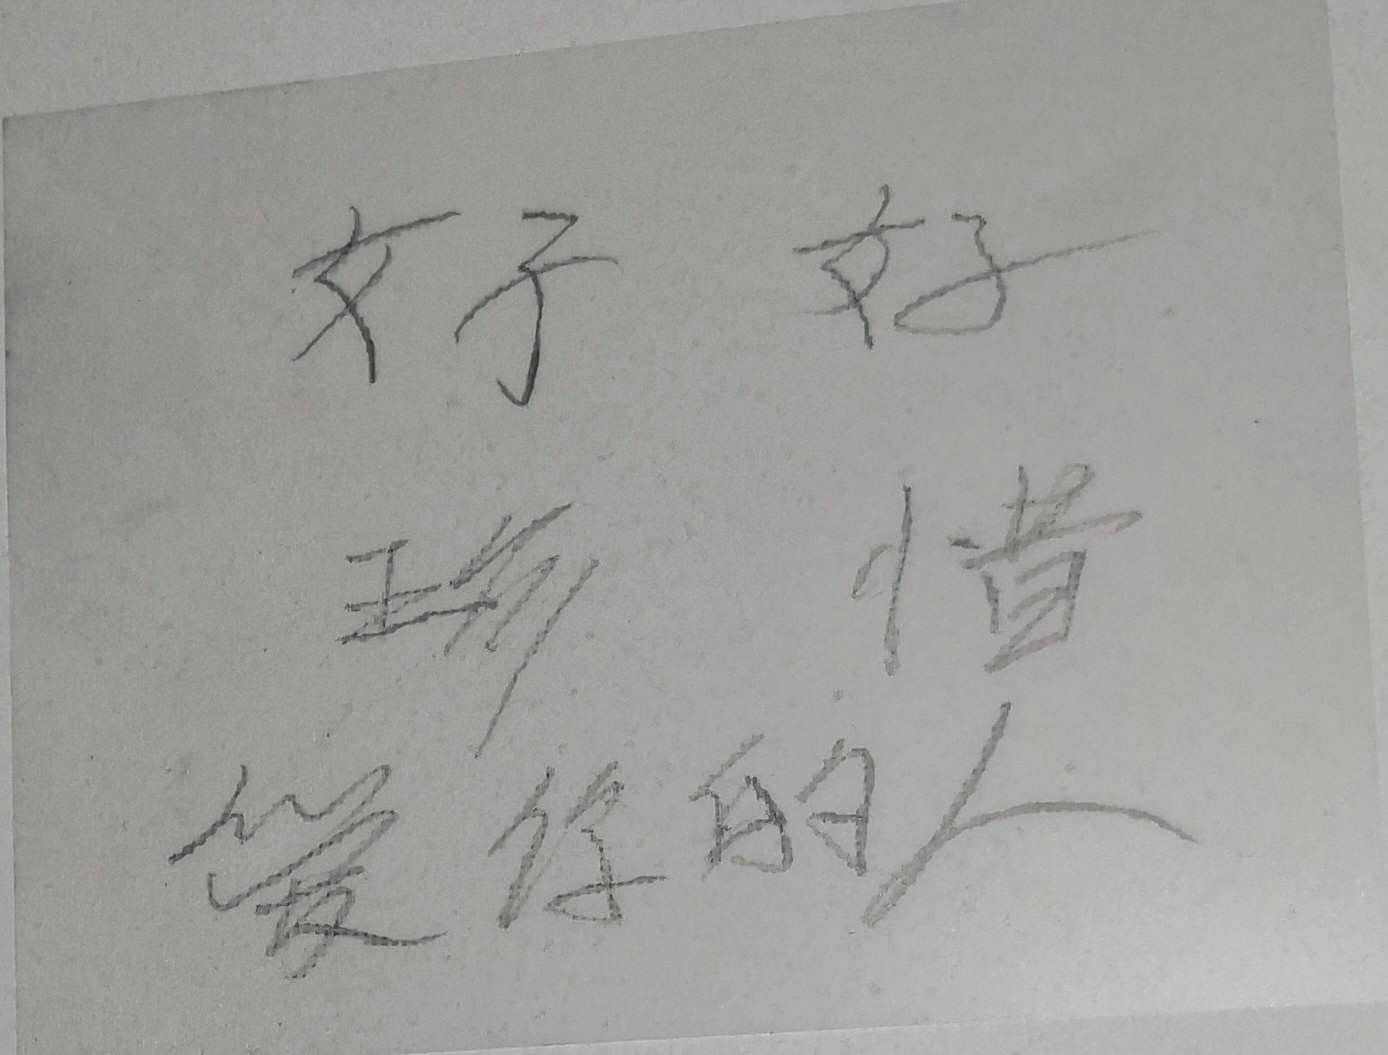 好好
珍惜
爱你的人